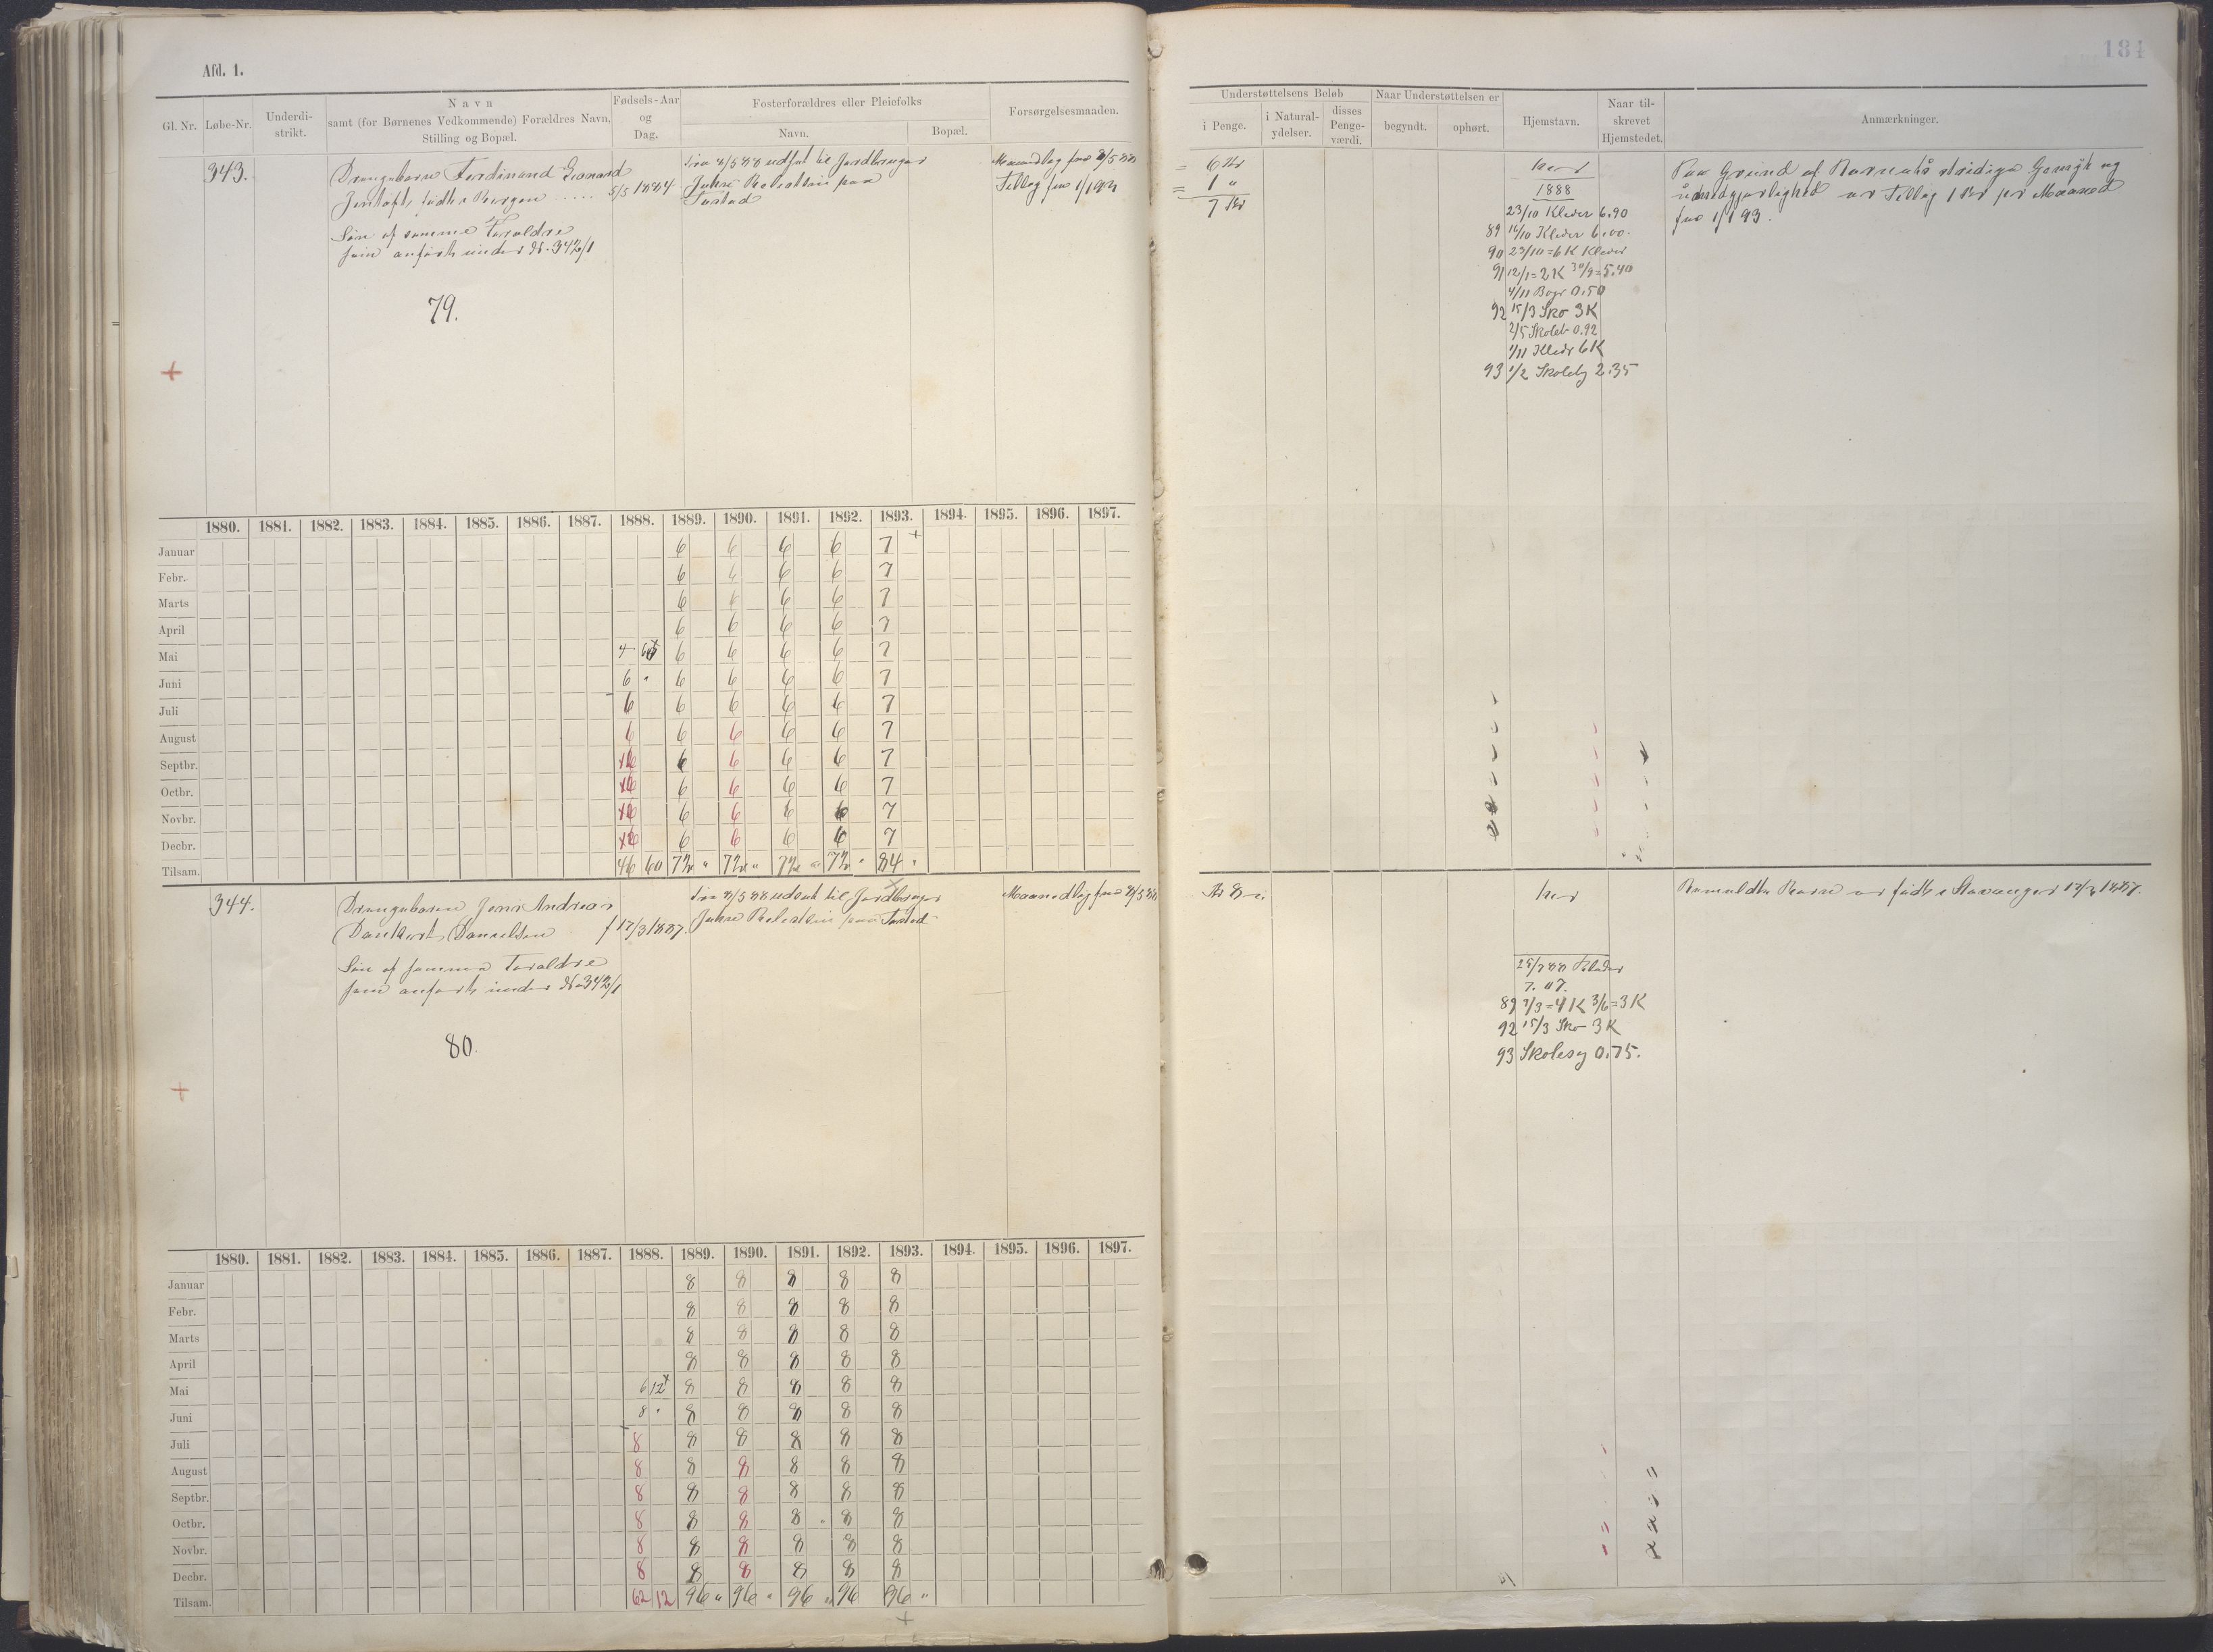 Afd. 1.
184
Gl. Nr. Løbe-Nr. Underdi-strikt. Navn samt (for Børnenes Vedkommende) Forældres Navn, Stilling og Bopæl. Fødsels-Aar og Dag. Fosterforældres eller Pleiefolks Navn. Bopæl. Forsørgelsesmaaden.
Understøttelsens Beløb i Penge. i Natural-ydelser. disses Penge-værdi. Naar Understøttelsen er begyndt. ophørt. Hjemstavn. Naar til-skrevet Hjemstedet. Anmærkninger.
343.
Drengebarn Ferdinand
født i Bergen ..... 5/5 1884
Søn af samme Forældre
som anført under No 342/1
79.
fra 8/5 88 udsat til Jordbruger
paa
Tastad
Maanedlag fra 8/5 88
Tillæg fra 1/1 93
= 6 Kr
= 1 "
7 Kr
her
1888
23/10 Klæder 6.90
89 16/10 Klæder 6.00.
90 23/10 = 6 K Klæder
91 12/1 = 2 K 30/9 = 5.40
4/11 Bøger 0.50
92 15/3 Sko 3 K
2/5 Skoleb 0.92
1/11 Klæder 6 K
93 1/2 Skolebg 2.35
Paa Grund af Barnets stridige Gemyt og
er Tillæg 1 Kr pr Maaned
fra 1/1 93.
1880. 1881. 1882. 1883. 1884. 1885. 1886. 1887. 1888. 1889. 1890. 1891. 1892. 1893. 1894. 1895. 1896. 1897.
Januar 6 6 6 6 7
Febr. 6 6 6 6 7
Marts 6 6 6 6 7
April 6 6 6 6 7
Mai 4 6 6 6 6 7
Juni 6 " 6 6 6 6 7
Juli 6 6 6 6 6 7
August 6 6 6 6 6 7
Septbr. 6 6 6 6 6 7
Octbr. 6 6 6 6 6 7
Novbr. 6 6 6 6 6 7
Decbr. 6 6 6 6 6 7
Tilsam. 46 60 72 " 72 " 72 " 72 " 84 "
344.
Drengebarn Jens Andreas
Danielsen f 17/3 1887.
Søn af samme Forældre
som anført under No 342/1
80.
fra 8/5 88 udsat til Jordbruger
paa Tastad
Maanedlag fra 8/5 88
Kr 8
her
25/7 88 Klæder
7.07.
89 7/3 = 4 K 3/6 = 3 K
92 15/3 Sko 3 K
93 Skolesg 0.75.
Barn er født i Stavanger 17/3 1887.
1880. 1881. 1882. 1883. 1884. 1885. 1886. 1887. 1888. 1889. 1890. 1891. 1892. 1893. 1894. 1895. 1896. 1897.
Januar 8 8 8 8 8
Febr. 8 8 8 8 8
Marts 8 8 8 8 8
April 8 8 8 8 8
Mai 6 12 8 8 8 8 8
Juni 8 " 8 8 8 8 8
Juli 8 8 8 8 8 8
August 8 8 8 8 8 8
Septbr. 8 8 8 8 8 8
Octbr. 8 8 8 8 8 8
Novbr. 8 8 8 8 8 8
Decbr. 8 8 8 8 8 8
Tilsam. 62 12 96 " 96 " 96 " 96 96 "